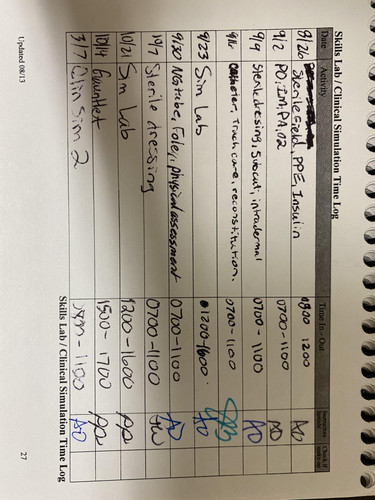 Skills Lab / Clinical Simulation Time Log
Date Activity Time In - Out Instructors Initials Check if
8/26 Sterile Field, PPE, Insulin 0800 1200 AD
9/2 PO, IM, PA, O2 0700-1100 AD
9/9 Sterile dressing, Subcut, intradermal 0700-1100 AD
9/16 Catheter, Trach care, reconstitution. 0700-1100
9/23 Sim Lab 01200-1600. AD
9/30 NG tube, Foley, physical assessment 0700-1100 AD
10/7 Sterile dressing 0700-1100
10/21 Sim Lab 1200-1600
10/14 Gauntlet 1500-1700
3/7 Clin Sim 2 0800-1100 AD
Skills Lab / Clinical Simulation Time Log
Updated 08/13
27